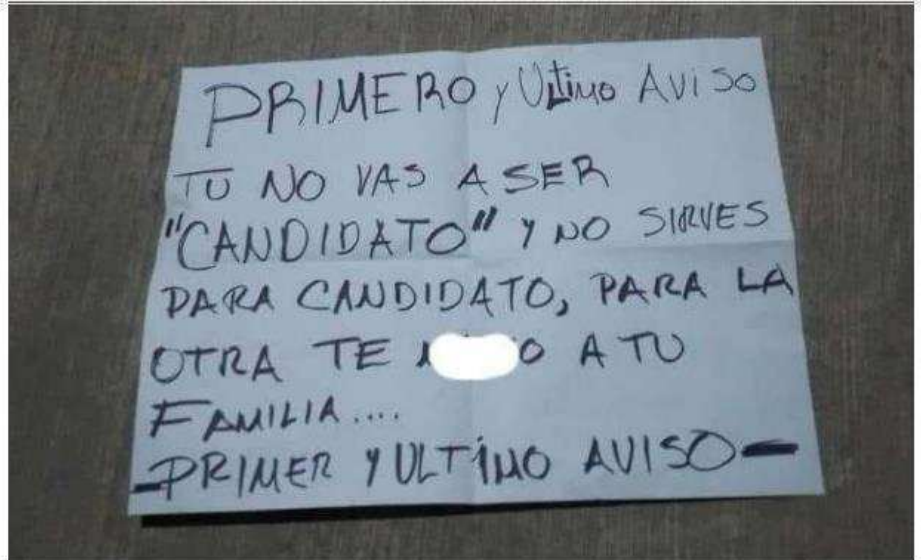 PRIMERO y Ultimo AViSO
TU NO VAS A SER
"CANDIDATO" Y NO SIRVES
PARA CANDIDATO, PARA LA
OTRA TE A TU
FAMILIA....
-PRIMER Y ULTiMO AVISO-